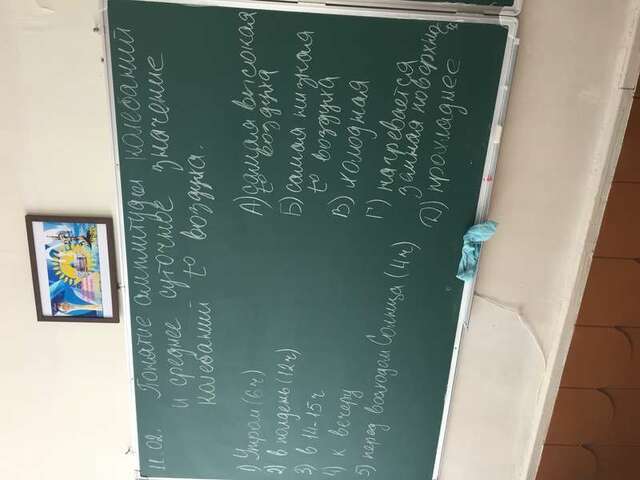 11.02. Понятие амплитуды колебаний
и среднее суточное значение
колебаний t° воздуха.
1) Утром (6ч)
2) в полдень (12ч)
3) в 14-15ч
4) к вечеру
5) перед восходом Солнца (4ч)
А) самая высокая
t° воздуха
Б) самая низкая
t° воздуха
В) холодная
Г) нагревается
земная поверхно-
Д) прохладнее